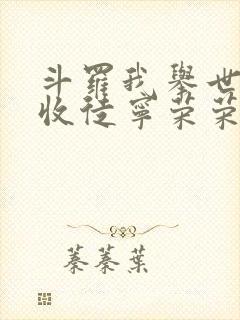 斗羅我舉世
收徒寧荣荣
蓁蓁葉